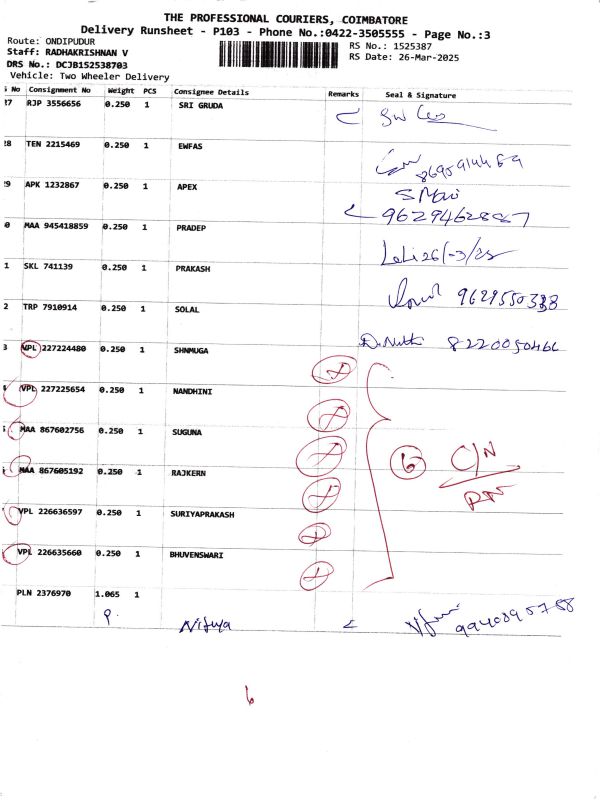 THE PROFESSIONAL COURIERS, COIMBATORE
Delivery Runsheet - P103 - Phone No.:0422-3505555 - Page No.:3
Route: ONDIPUDUR RS No.: 1525387
Staff: RADHAKRISHNAN V RS Date: 26-Mar-2025
DRS No.: DCJB152538703
Vehicle: Two Wheeler Delivery
No Consignment No Weight PCS Consignee Details Remarks Seal & Signature
RJP 3556656 0.250 1 SRI GRUDA
TEN 2215469 0.250 1 EWFAS
APK 1232867 0.250 1 APEX
MAA 945418859 0.250 1 PRADEP
SKL 741139 0.250 1 PRAKASH 9629550338
TRP 7910914 0.250 1 SOLAL 8220050466
VPL 227224480 0.250 1 SHNMUGA
VPL 227225654 0.250 1 NANDHINI
MAA 867602756 0.250 1 SUGUNA
MAA 867605192 0.250 1 RAJKERN
6 C/N
VPL 226636597 0.250 1 SURIYAPRAKASH
VPL 226635660 0.250 1 BHUVENSWARI
PLN 2376970 1.065 1
6